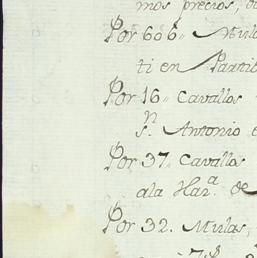 mos precios,
Por 606" Mula
ti en Partid
Por 16" Cavallos
sn. Antonio e
Por 37. Cavallos
ala Harª. de
Por 32. Mulas,